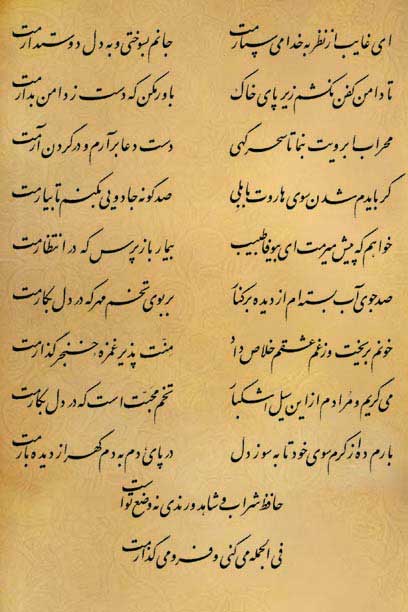 ای غایب از نظر به خدا می سپارمت جانم بسوختی و به دل دوستدارمت
تا دامن کفن نکشم زیر پای خاک باور مکن که دست ز دامن بدارمت
محراب ابرویت بنما تا سحرگهی دست دعا برآرم و در گردن آرمت
گر بایدم شدن سوی هاروت بابلی صد گونه جادویی بکنم تا بیارمت
خواهم که پیش میرمت ای بیوفا طبیب بیمار بازپرس که در انتظارمت
صد جوی آب بسته ام از دیده بر کنار بر بوی تخم مهر که در دل بکارمت
خونم بریخت وز غم عشقم خلاص داد منّت پذیر غمزه خنجر گذارمت
می گریم و مرادم از این سیل اشکبار تخم محبّت است که در دل بکارمت
بارم ده از کرم سوی خود تا به سوز دل در پای دم به دم گهر از دیده بارمت
حافظ شراب و شاهد و رندی نه وضع توست
فی الجمله می کنی و فرو می گذارمت